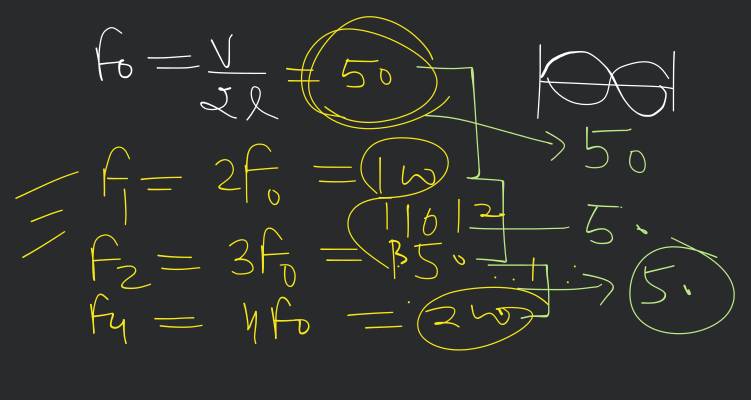 F₀ = V/2l = 50
50
f₁ = 2F₀ = 100
1 1 0 1 2
50
F₂ = 3F₀ = 150
50
F₄ = 4F₀ = 200